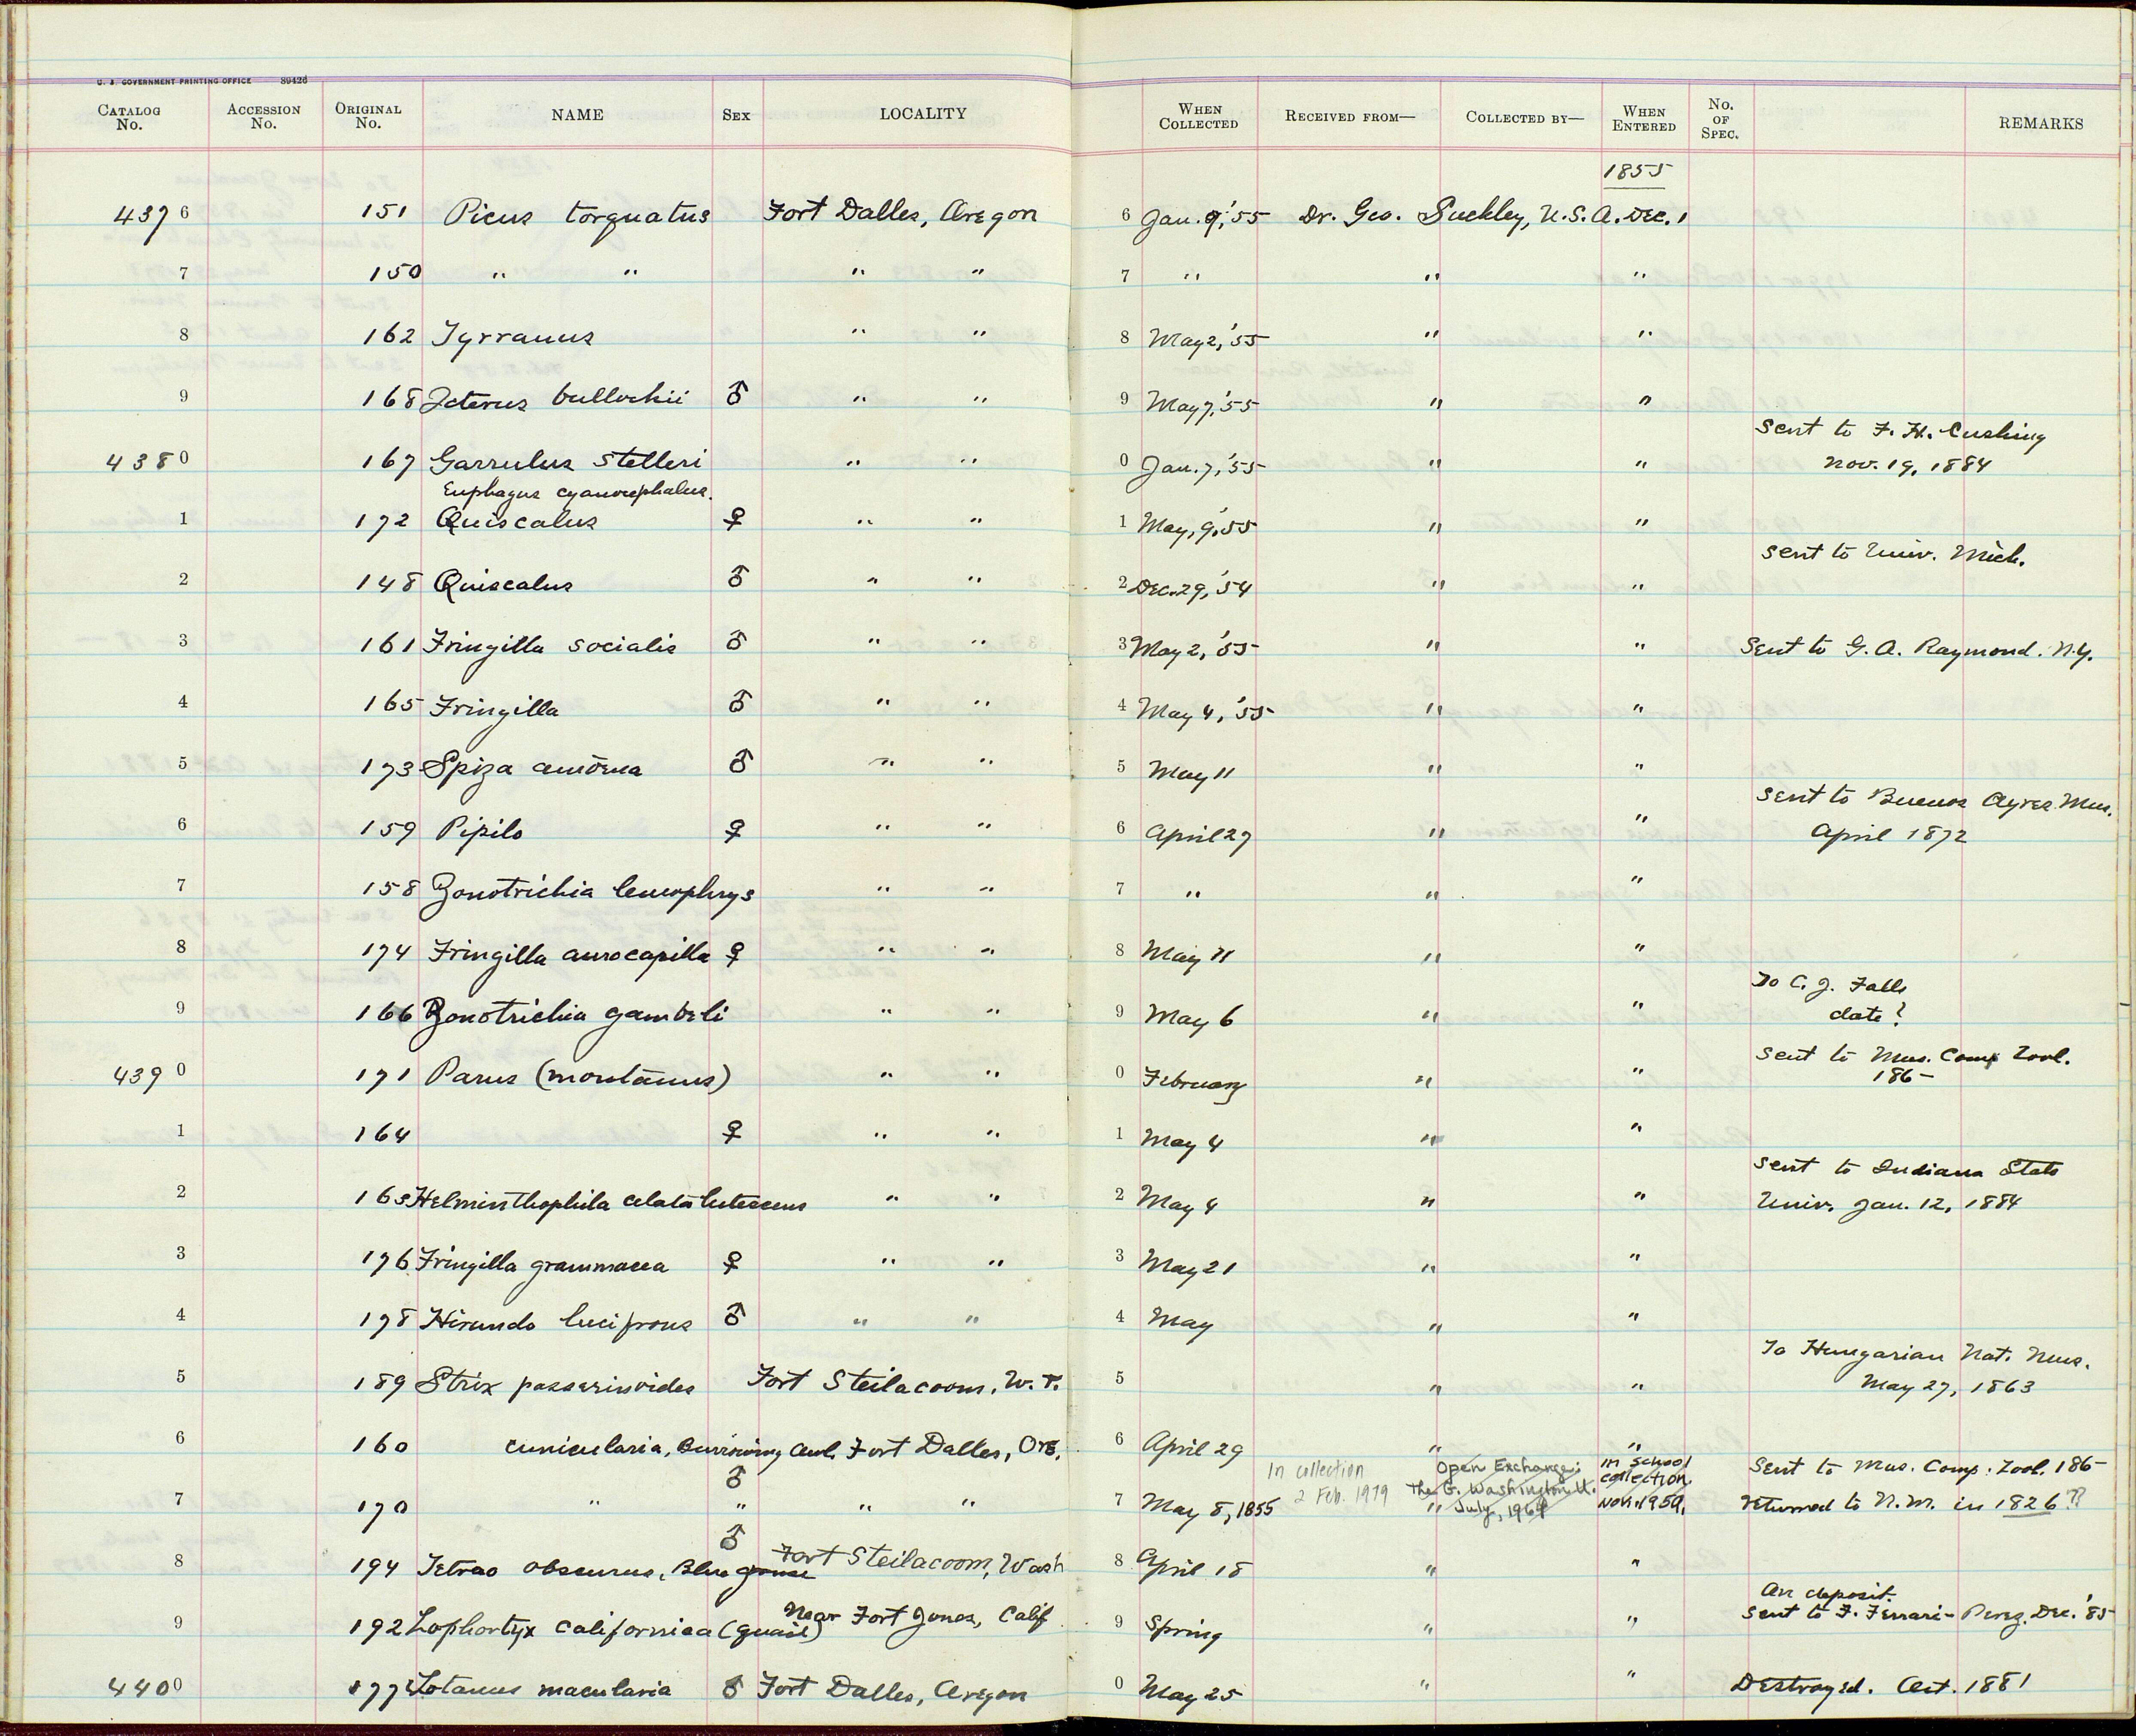 U. S. GOVERNMENT PRINTING OFFICE 89426
CATALOG No. ACCESSION No. ORIGINAL No. NAME SEX LOCALITY WHEN COLLECTED RECEIVED FROM— COLLECTED BY— WHEN ENTERED No. OF SPEC. REMARKS
1855
4376 151 Picus torquatus Fort Dalles, Oregon 6 Jan. 9, '55 Dr. Geo. Suckley, U.S.A. Dec. 1
7 150 " " " " 7 " " "
8 162 Tyrranus " " 8 May 2, '55 " "
9 168 Icterus bullockii ♂ " " 9 May 7, '55 " "
Sent to F. H. Cushing
4380 167 Garrulus Stelleri " " 0 Jan. 7, '55 " " Nov. 19, 1884
Euphagus cyanocephalus.
1 172 Quiscalus ♀ " " 1 May, 9, '55 " "
Sent to Univ. Mich.
2 148 Quiscalus ♂ " " 2 Dec. 29, '54 " "
3 161 Fringilla socialis ♂ " " 3 May 2, '55 " " Sent to G. A. Raymond. N.Y.
4 165 Fringilla ♂ " " 4 May 4, '55 " "
5 173 Spiza amoena ♂ " " 5 May 11 " "
Sent to Buenos Ayres Mus.
6 159 Pipilo ♀ " " 6 April 27 " " April 1872
7 158 Zonotrichia leucophrys " " 7 " " "
8 174 Fringilla aurocapilla ♀ " " 8 May 11 " "
To C. J. Falls
9 166 Zonotrichia gambeli " " 9 May 6 " " date?
Sent to Mus. Comp Zool.
4390 171 Parus (montanus) " " 0 February " " 186-
1 164 ♀ " " 1 May 4 " "
Sent to Indiana State
2 163 Helminthophila celata lutescens " " 2 May 4 " " Univ. Jan. 12, 1884
3 176 Fringilla grammaca ♀ " " 3 May 21 " "
4 178 Hirundo lucifrons ♂ " " 4 May " "
To Hungarian Nat. Mus.
5 189 Strix passerinoides Fort Steilacoom, W. T. 5 " " May 27, 1863
6 160 cunicularia, Burrowing Owl Fort Dalles, Ore. 6 April 29 " "
♂ In collection Open Exchange: in school Sent to Mus. Comp. Zool. 186-
2 Feb. 1979 The G. Washington U. collection
7 170 " " " " 7 May 8, 1855 " July, 1964 Nov. 1959. returned to N.M. in 1826??
♂
8 194 Tetrao obscurus, Blue grouse Fort Steilacoom, Wash 8 April 18 " "
On deposit.
9 192 Lophortyx californica (quail) Near Fort Jones, Calif 9 Spring " " Sent to F. Ferrari-Perez. Dec. '85
4400 177 Totanus macularia ♂ Fort Dalles, Oregon 0 May 25 " " Destroyed. Oct. 1881